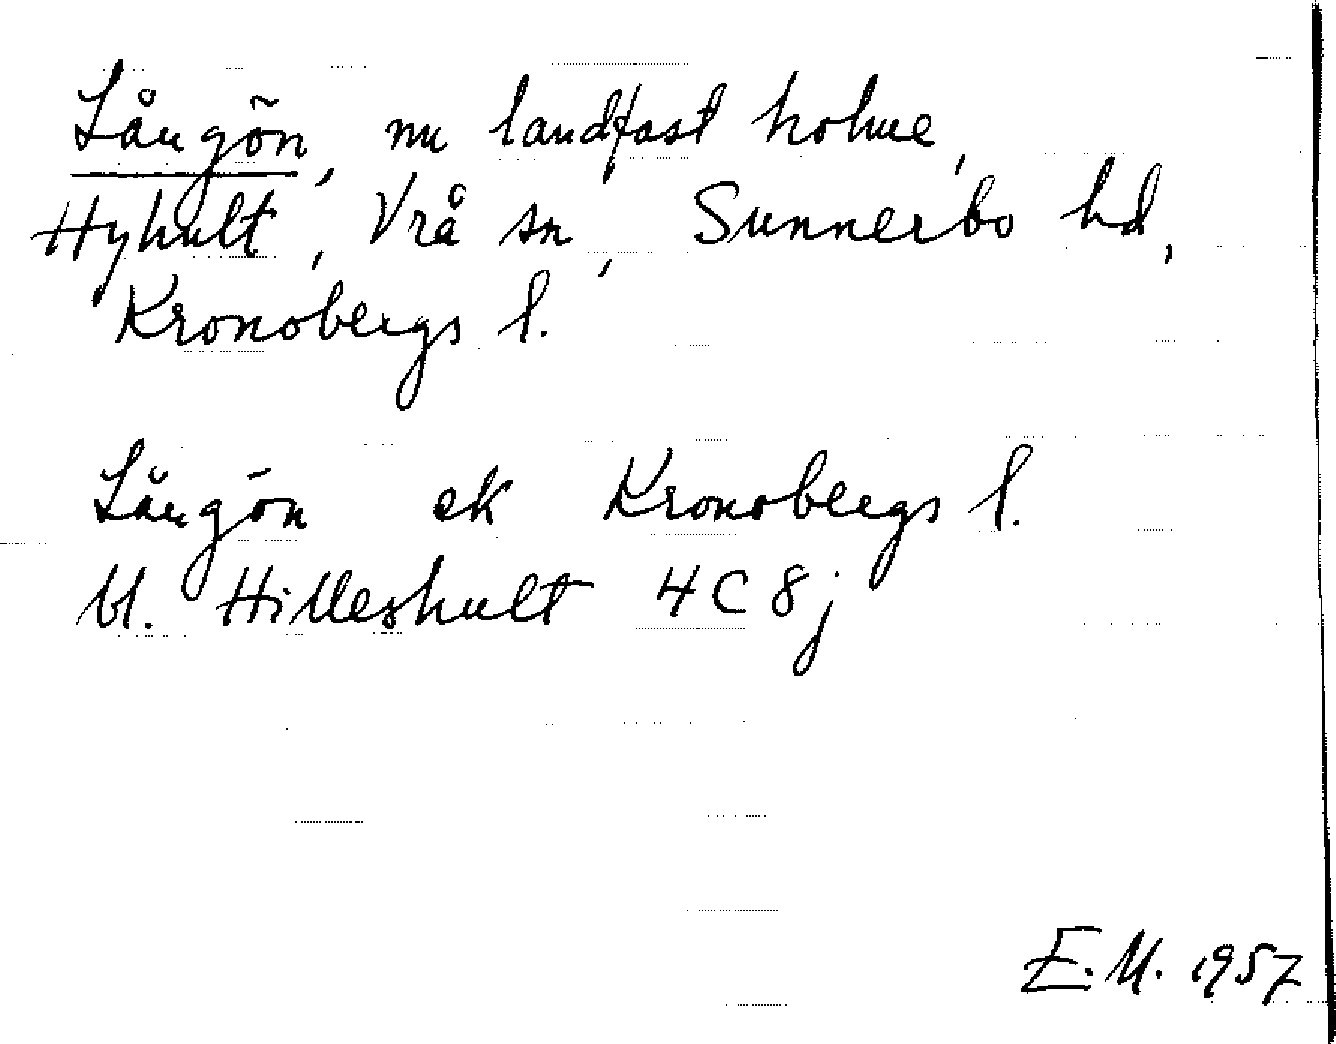 Långön, nu landfast holme,
Hyhult, Vrå sn, Sunnerbo hd,
Kronobergs l.
Långön ek Kronobergs l.
bl. Hilleshult 4C8j
E.M. 1957